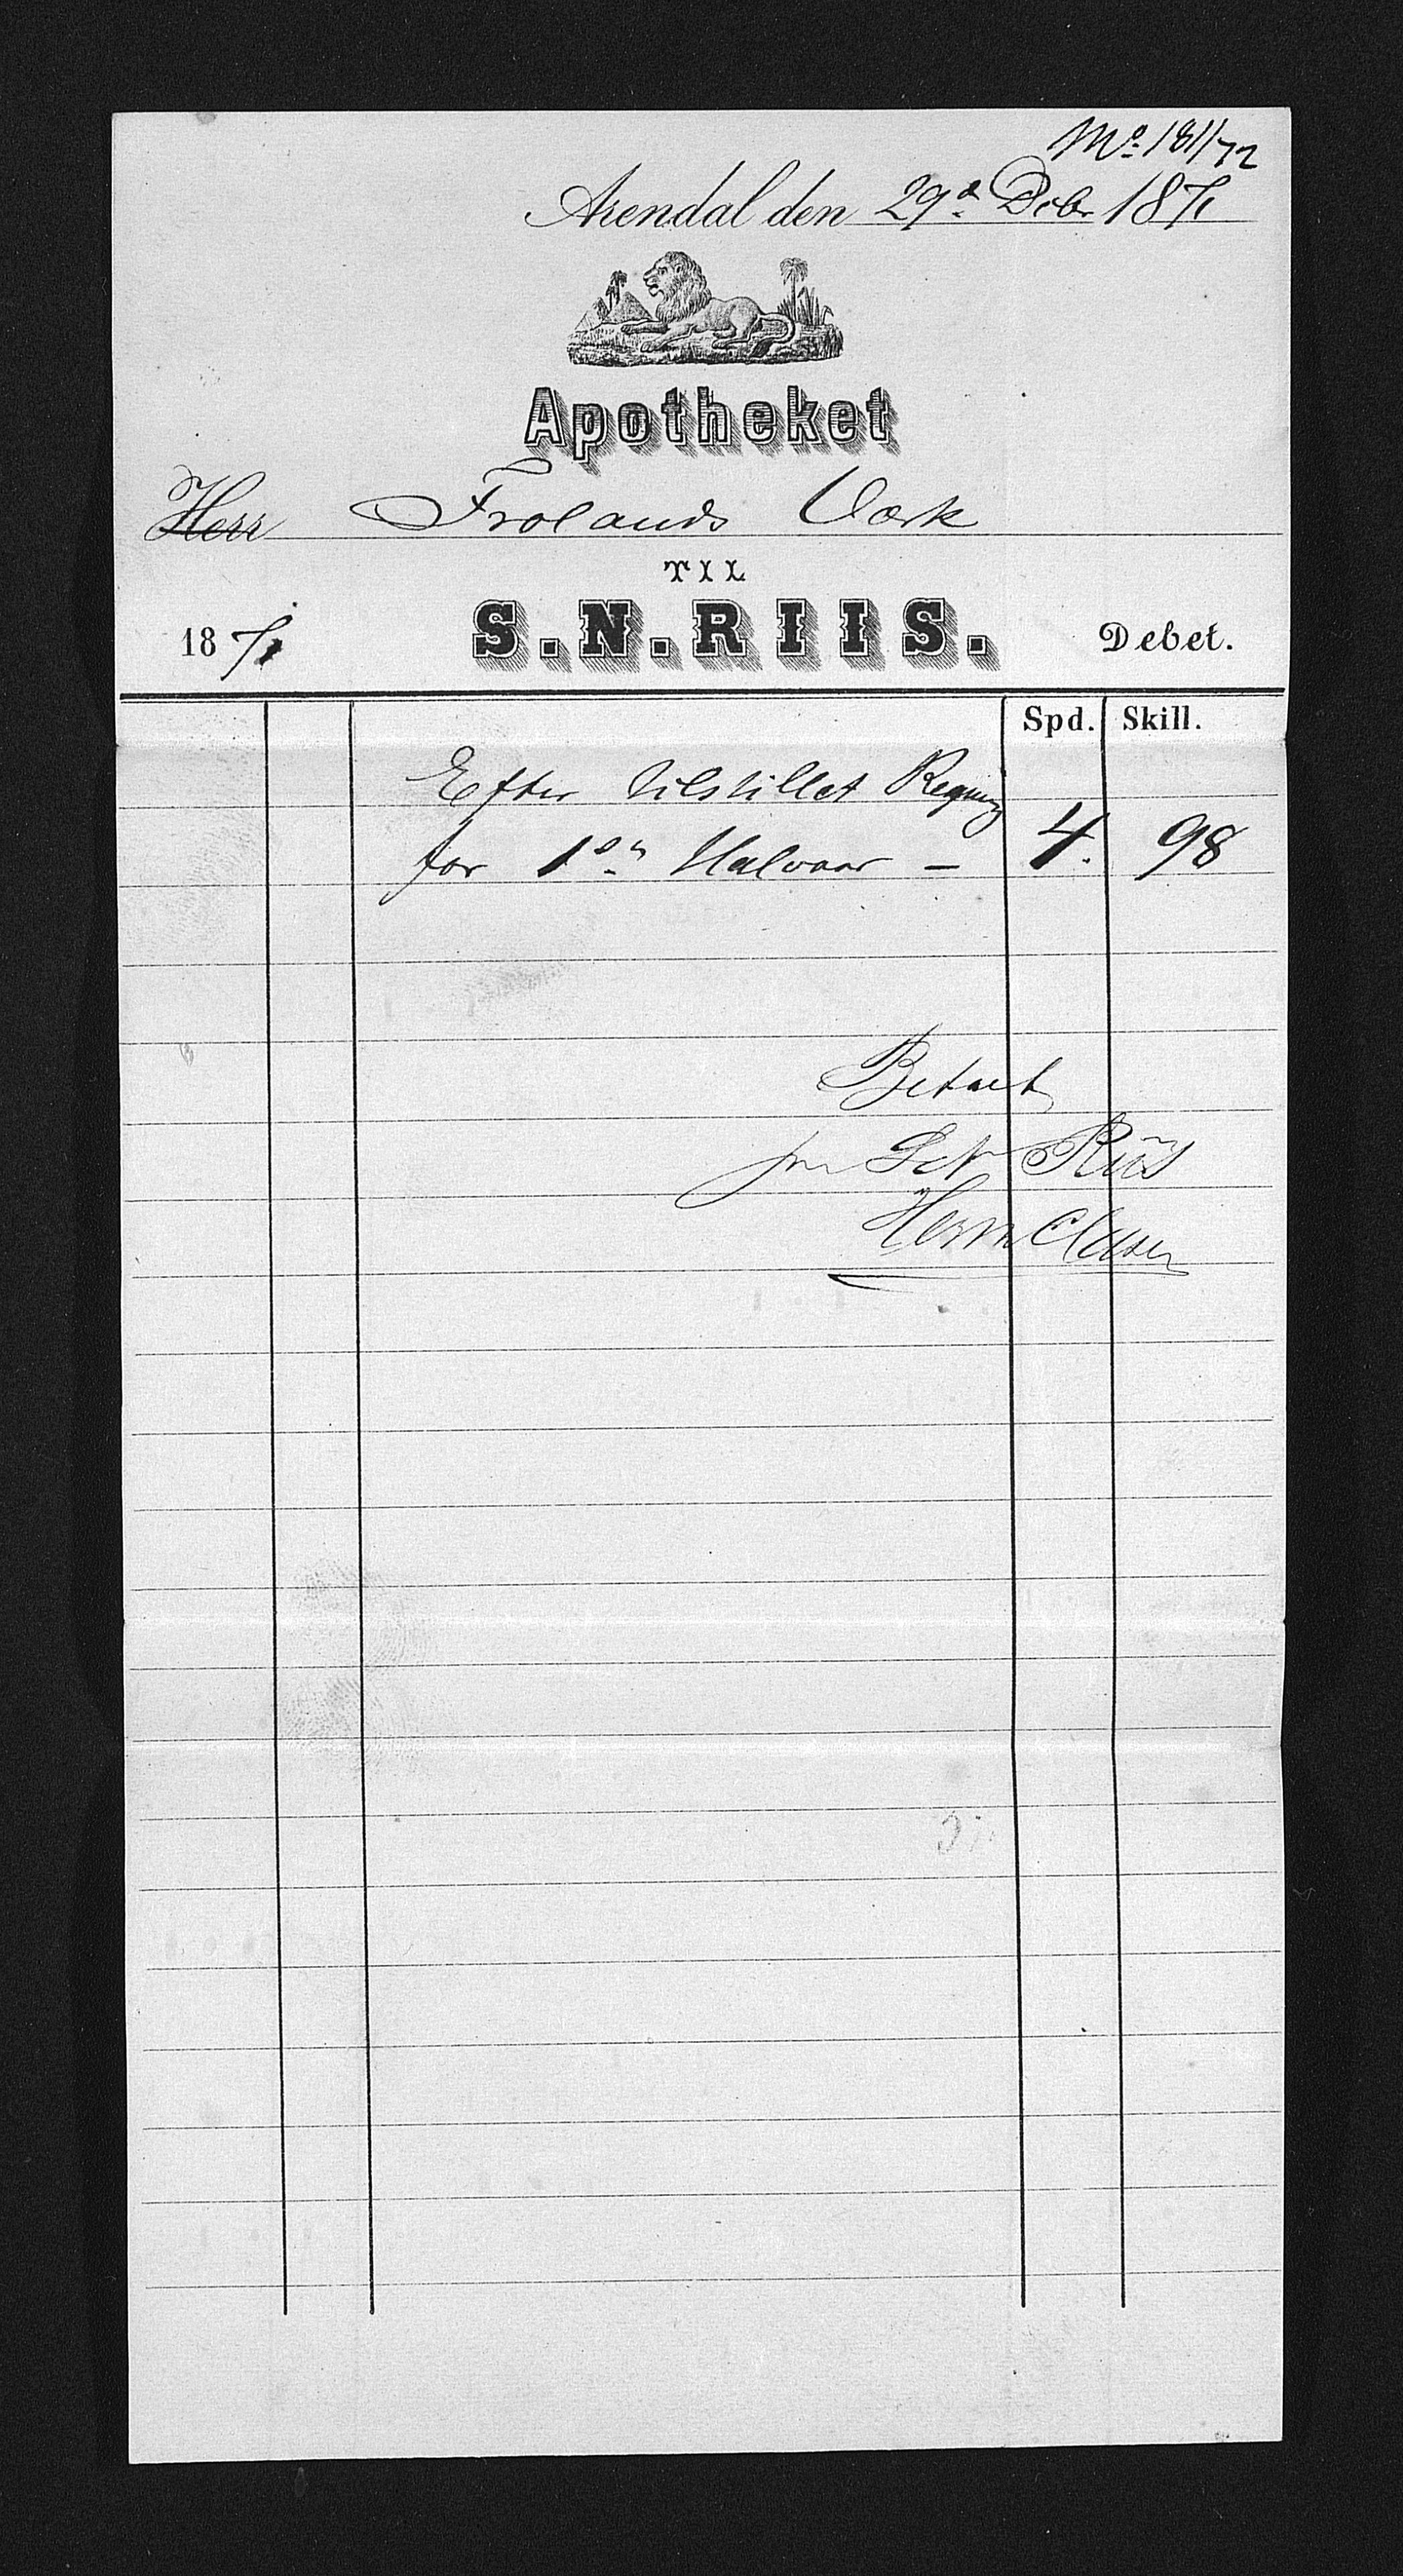 No 181/72
Arendal den 29de Debr 1871
Apotheket
Herr Frolands Værk
TIL
1871 S. N. RIIS. Debet.
Spd. Skill.
Efter tilstillet Regning
for 1ste Halvaar – 4. 98
Betalt
Riis
Herm Clasen